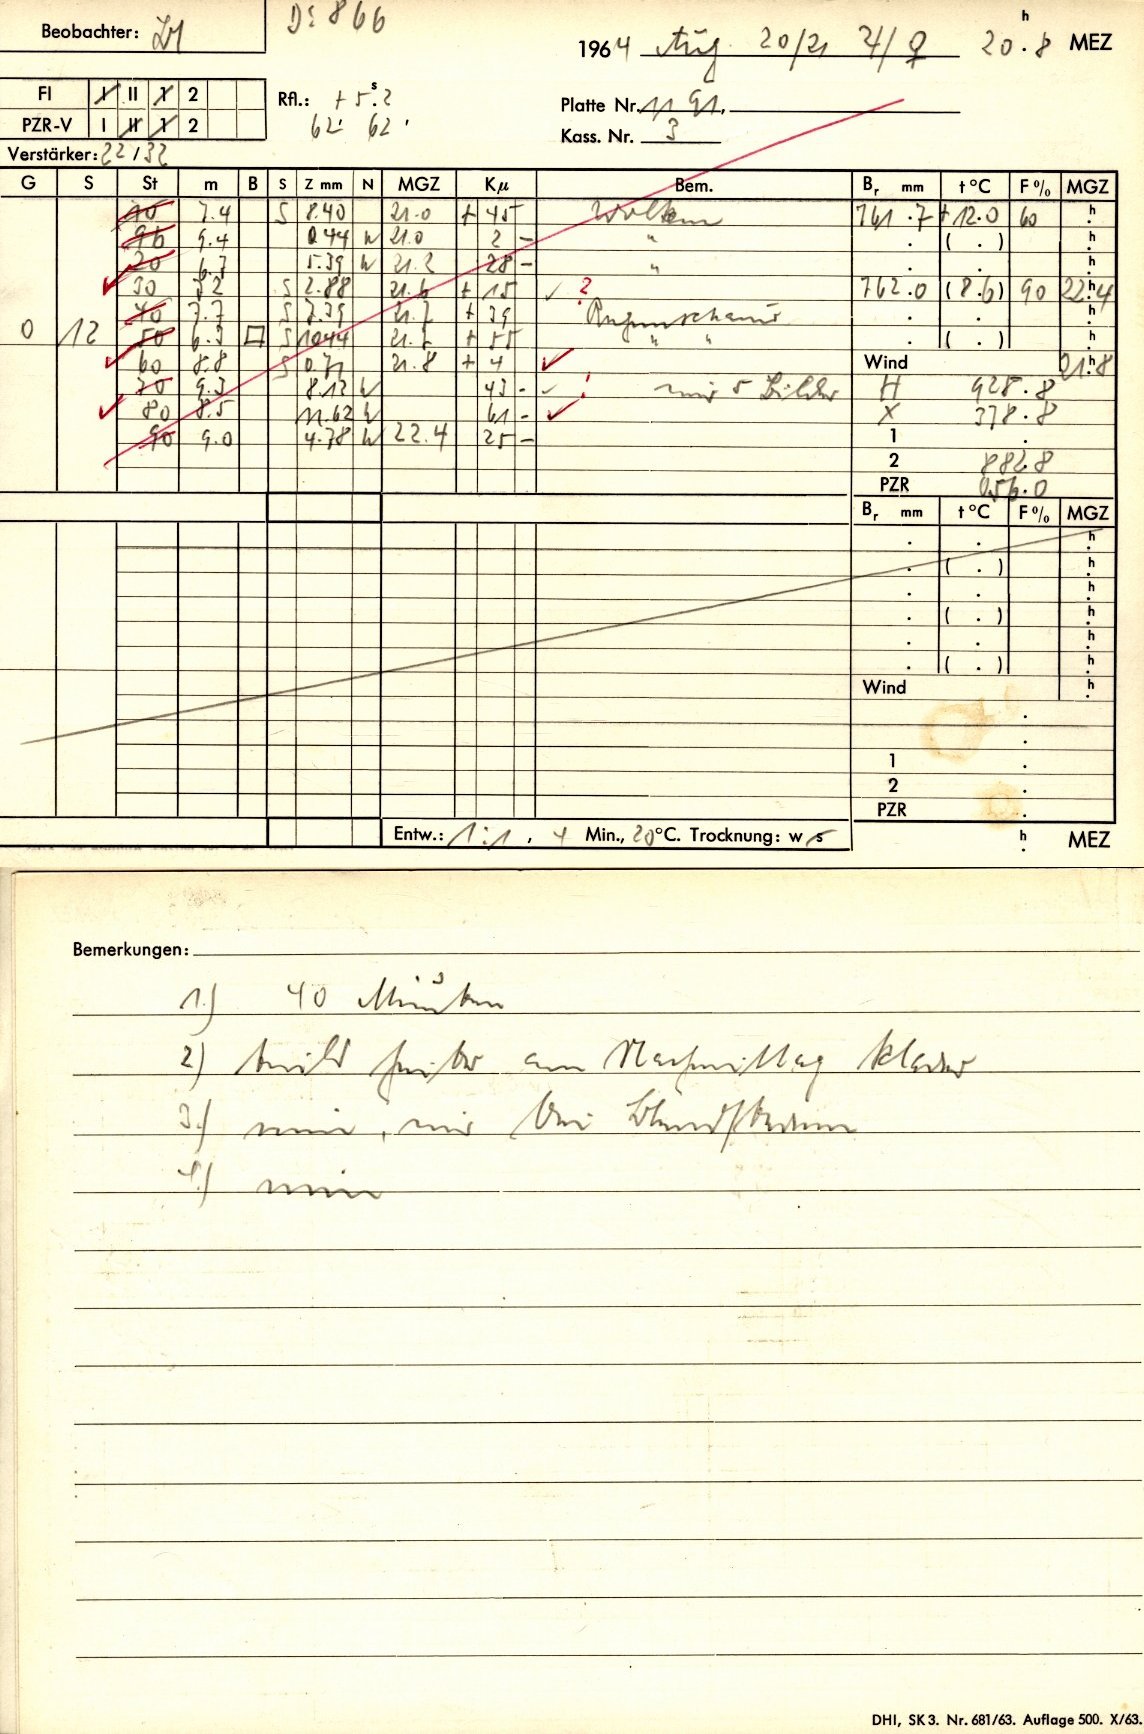 Beobachter:
D: 866
1964 Aug. 20/21 ♃/♀ 20h.8 MEZ
FI I II 1 2
PZR-V I II 1 2
Rfl.: + 5s.2
62' 62'
Platte Nr. 1191.
Kass. Nr. 3
Verstärker: 22/32
G S St m B S Z mm N MGZ Kμ Bem. Br mm t°C F% MGZ
10 7.4 S 8.40 21.0 + 45 Wolken 761.7 +12.0 60 h
96 9.4 0.44 W 21.0 2 - " . ( . ) h
20 6.3 5.39 W 21.2 28 - " . . h
30 5.2 S 2.88 21.6 + 15 ✓ ? 762.0 (8.6) 90 22h.4
40 7.7 S 7.39 21.7 + 39 Regenschauer . . h
0 12 50 6.3 □ S 10.44 21.7 + 55 " " . ( . ) h
60 8.8 S 0.71 21.8 + 4 ✓ Wind 21h.8
70 9.3 8.12 W 43 - ✓ ! nur 5 Bilder H 928.8
80 8.5 11.62 W 61 - ✓ X 378.8
90 9.0 4.78 W 22.4 25 - 1 .
2 882.8
PZR 056.0
Br mm t°C F% MGZ
. . h
. ( . ) h
. . h
. ( . ) h
. . h
. ( . ) h
Wind h
1 .
2 .
PZR .
Entw.: 1:1, 4 Min., 20°C. Trocknung: w s
h MEZ
Bemerkungen:
1.) 40 Minuten
2) teils heiter am Nachmittag klarer
3.) nein, nur bei
4.) nein
DHI, SK 3. Nr. 681/63. Auflage 500. X/63.